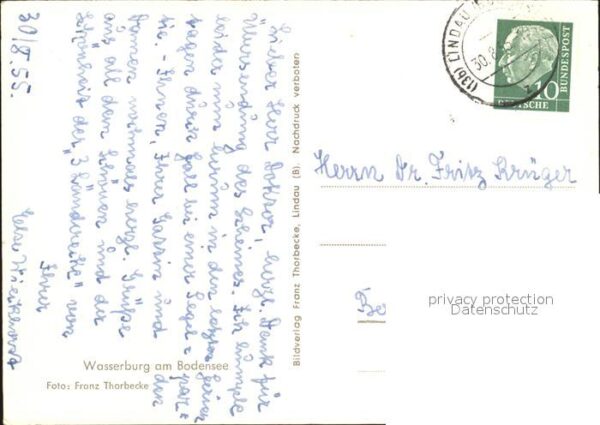 30/8.55.
Lieber Herr Doktor, herzl. Dank für
Übersendung des Scheines. Ich humple
leider nun herum in den letzten Ferien
tagen durch Fall bei einer Segel-par-
tie. - Ihnen, Ihrer Gattin und den
Damen nochmals herzl. Grüße
aus all dem Schönen und der
Schönheit der "3 Länderecke" von
Ihrer
Else
Wasserburg am Bodensee
Foto: Franz Thorbecke
Bildverlag Franz Thorbecke, Lindau (B). Nachdruck verboten
(13b) LINDAU
30.8.
10
DEUTSCHE
BUNDESPOST
Herrn Dr. Fritz Krüger
Be
privacy protection
Datenschutz